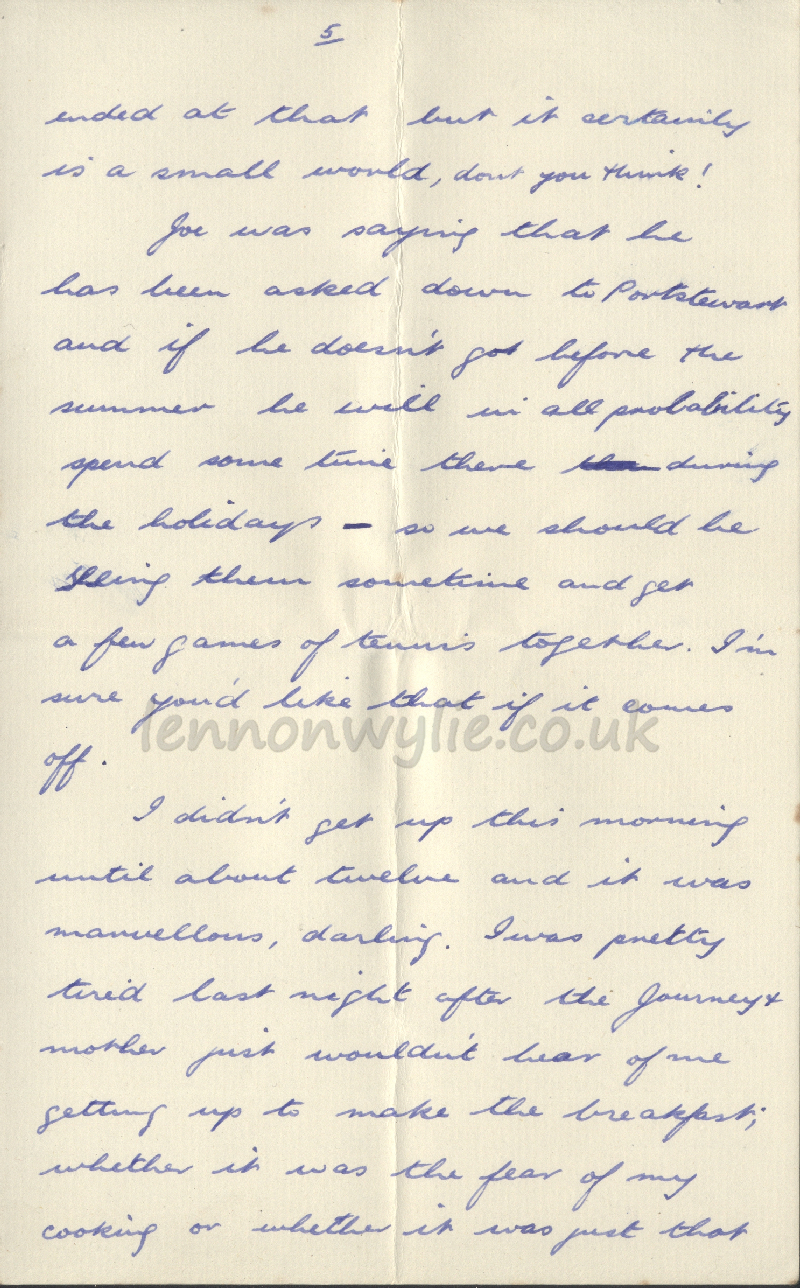 5
ended at that but it certainly
is a small world, dont you think!
Joe was saying that he
has been asked down to Portstewart
and if he doesn't go before the
summer he will in all probability
spend some time there during
the holidays – so we should be
seeing them sometime and get
a few games of tennis together. I'm
sure you'd like that if it comes
off.
lennonwylie.co.uk
I didn't get up this morning
until about twelve and it was
marvellous, darling. I was pretty
tired last night after the Journey &
mother just wouldn't hear of me
getting up to make the breakfast;
whether it was the fear of my
cooking or whether it was just that